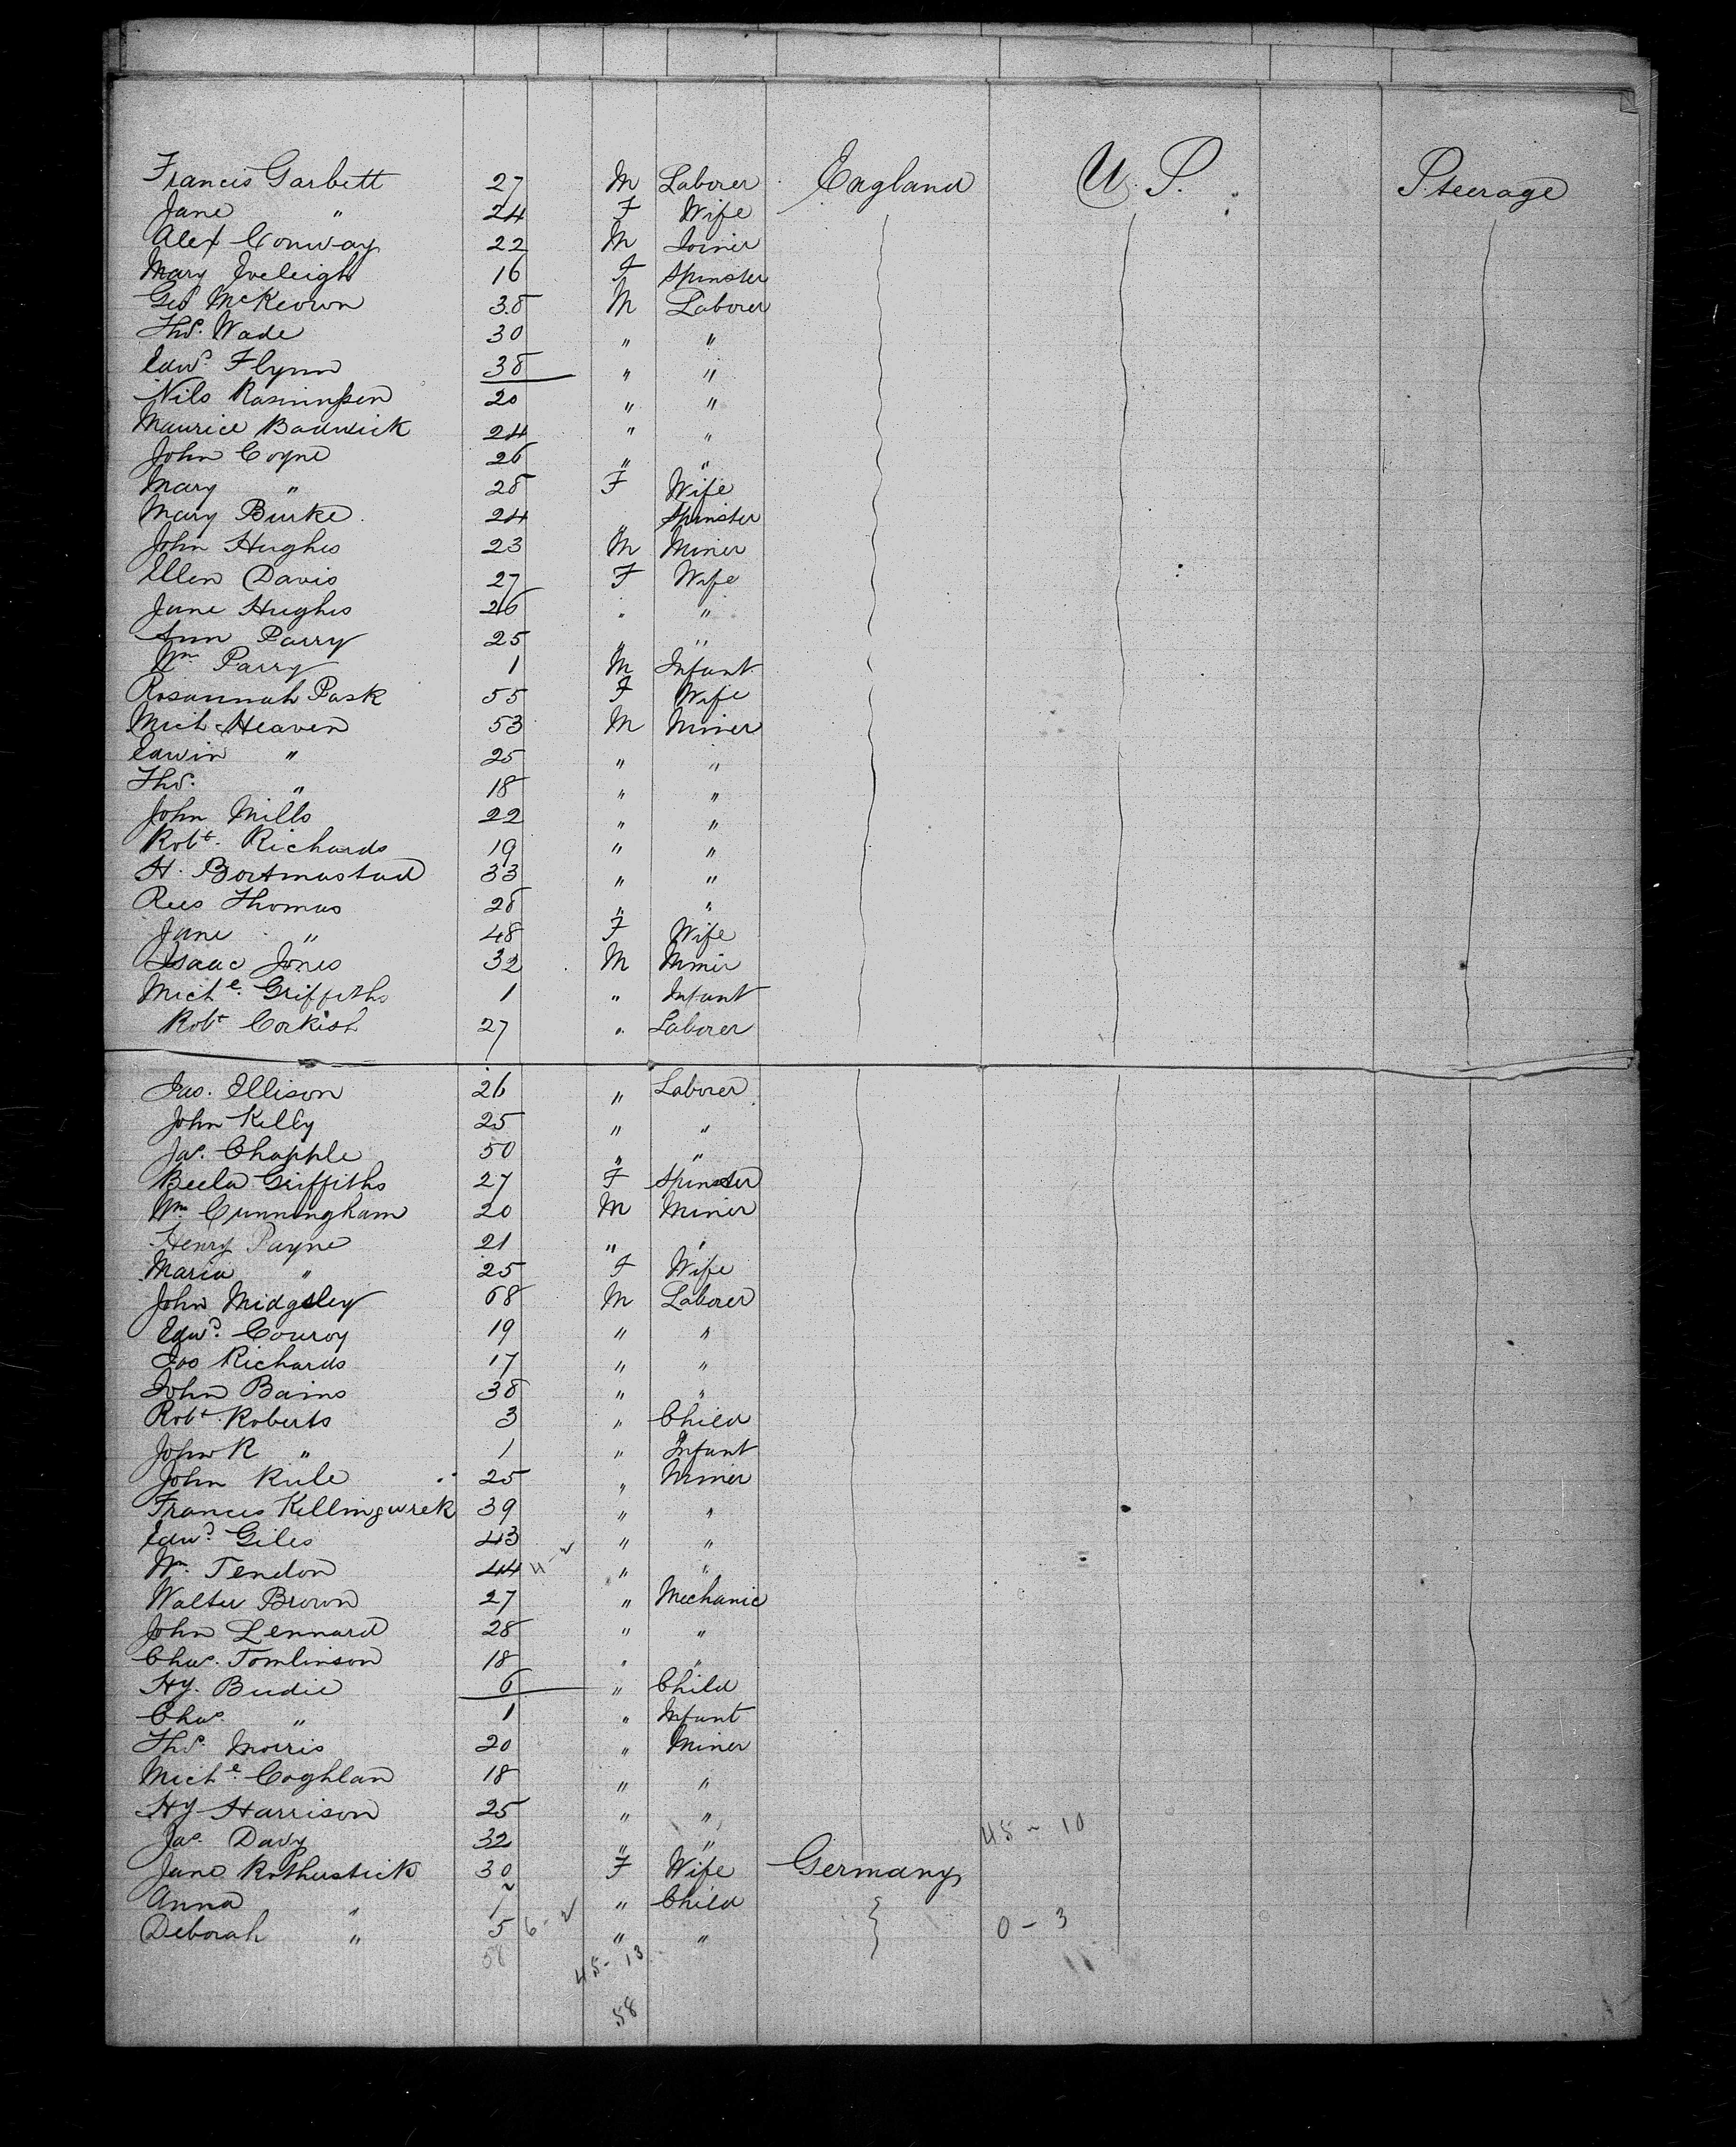 Francis Garbett 27 M Laborer England U.S. Steerage
Jane " 24 F Wife
Alex Conway 22 M Joiner
Mary Iveleigh 16 F Spinster
Geo McKeown 38 M Laborer
Thos. Wade 30 " "
Edwd Flynn 38 " "
Nils Rasmussen 20 " "
Maurice 24 " "
John Coyne 26 " "
Mary " 28 F Wife
Mary Burke 24 " Spinster
John Hughes 23 M Miner
Ellen Davis 27 F Wife
Jane Hughes 26 " "
Ann Parry 25 " "
Wm Parry 1 M Infant
Rosannah Pask 55 F Wife
Mich Heaven 53 M Miner
Edwin " 25 " "
Thos. " 18 " "
John Mills 22 " "
Robt. Richards 19 " "
H. Bortmastad 33 " "
Rees Thomas 28 " "
Jane " 48 F Wife
Isaac Jones 32 M Miner
Michl. Griffiths 1 " Infant
Robt Corkish 27 " Laborer
Jas. Ellison 26 " Laborer
John Kelly 25 " "
Jas. Chapple 50 " "
Beela Griffiths 27 F Spinster
Wm Cunningham 20 M Miner
Henry Payne 21 " "
Maria " 25 F Wife
John Midgsley 68 M Laborer
Edwd. Conroy 19 " "
Jos Richards 17 " "
John Bains 38 " "
Robt. Roberts 3 " Child
John R " 1 " Infant
John Rule 25 " Miner
Francis Killingwrek 39 " "
Edwd. Giles 43 " "
Wm. Tendon 44 " "
Walter Brown 27 " Mechanic
John Lennard 28 " "
Chas. Tomlinson 18 " "
Hy. Budie 6 " Child
Chas. " 1 " Infant
Thos. Morris 20 " Miner
Michl. Coghlan 18 " "
Hy Harrison 25 " "
Jas. Davy 32 " " 45 - 10
Jane Rothustick 30 F Wife Germany
Anna " 1 " Child
Deborah " 5 6 - 2 " " 0 - 3
58 45 - 13
58